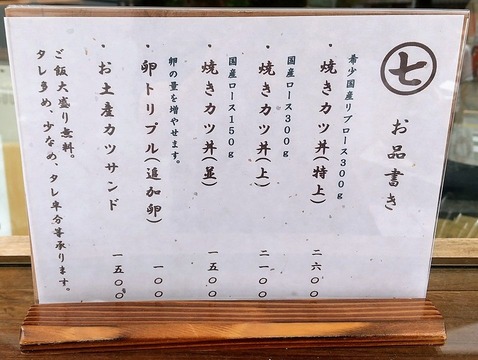 七
お品書き
希少国産リブロース300g
・焼きカツ丼(特上) 二六〇〇
国産ロース300g
・焼きカツ丼(上) 二一〇〇
国産ロース150g
・焼きカツ丼(並) 一五〇〇
卵の量を増やせます。
・卵トリプル(追加卵) 一〇〇
・お土産カツサンド 一五〇〇
ご飯大盛り無料。
タレ多め、少なめ、タレ半分等承ります。